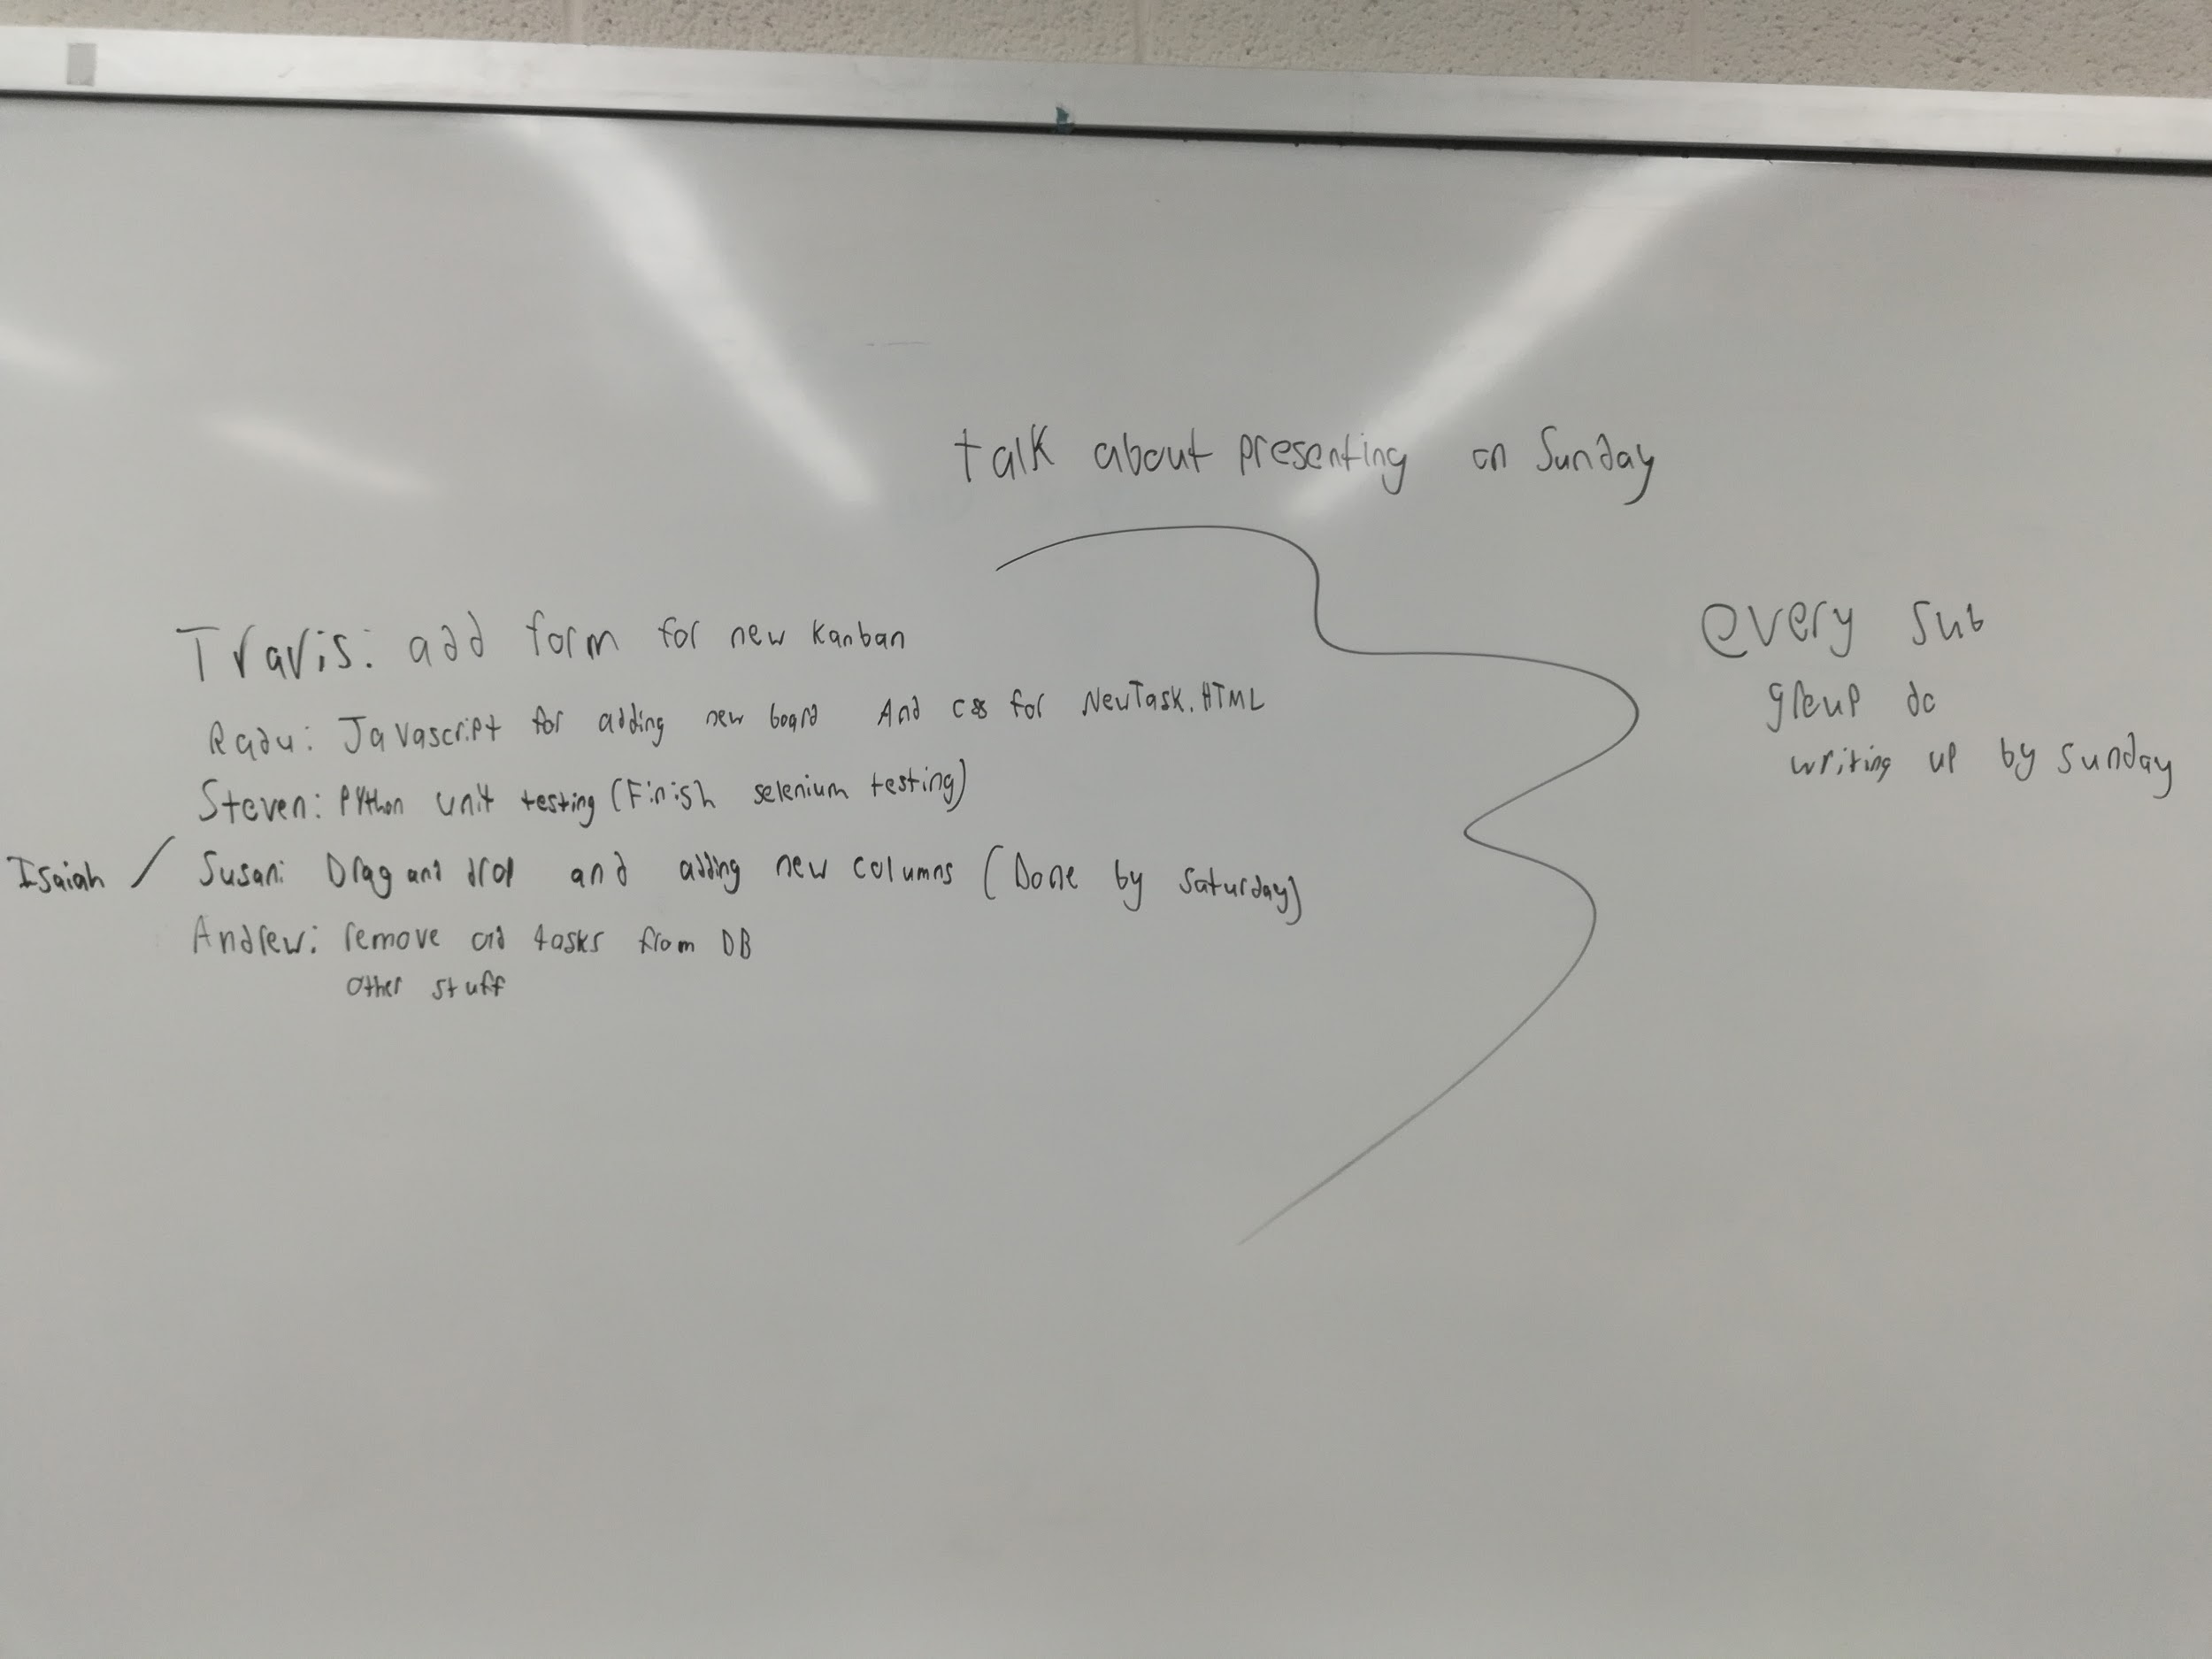 talk about presenting on Sunday
Travis: add form for new Kanban
Radu: Javascript for adding new board And css for NewTask.HTML
Steven: Python unit testing (Finish selenium testing)
Isaiah / Susan: Drag and drop and adding new columns (Done by Saturday)
Andrew: remove old tasks from DB
other stuff
every sub
group do
writing up by sunday